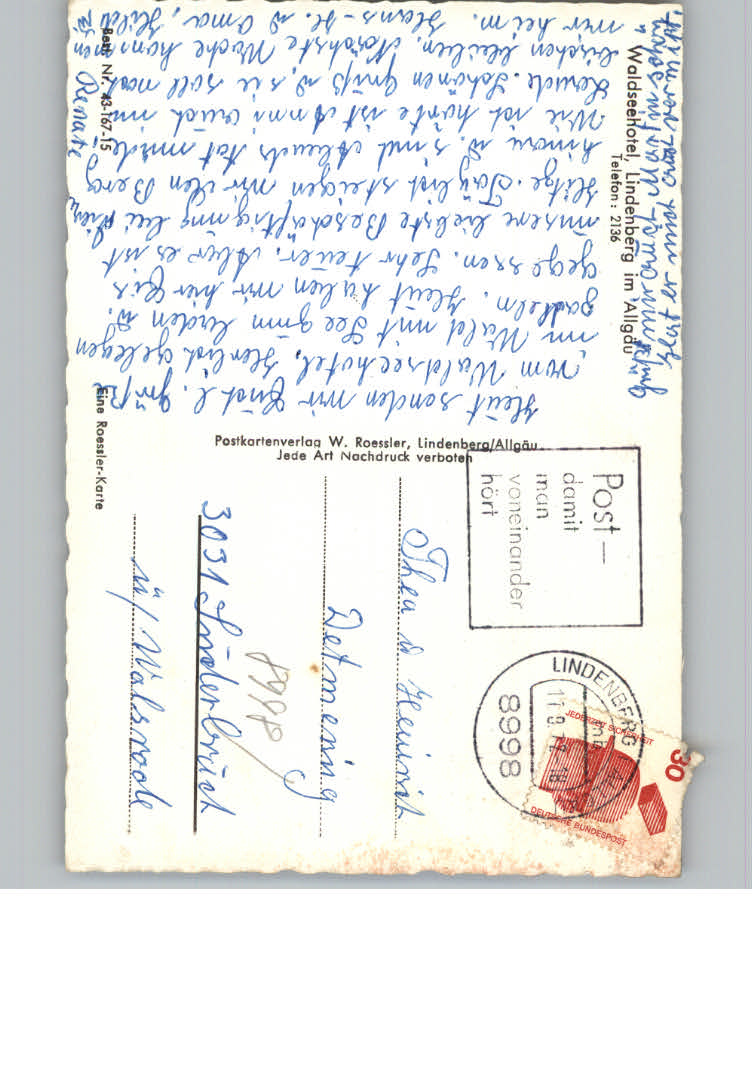 Waldseehotel, Lindenberg im Allgäu
Telefon: 2136
Heut senden wir Euch l. Grüße
vom Waldseehotel. Herlich gelegen
im Wald mit See zum baden u.
paddeln. Heut haben wir hier Eis
gegessen. Sehr teuer. Aber es ist
unsere liebste Beschäftigung bei der
Hitze. Täglich steigen wir den Berg
hinauf u. sind Abends tot müde.
Wie ich hörte ist Anni auch in
Heide. Schönen Gruß u. sie soll noch
bischen bleiben. Nächste Woche
wir heim. Hans-H. u. Oma,
Renate
Best. Nr. 43-167-15
Eine Roessler-Karte
Postkartenverlag W. Roessler, Lindenberg/Allgäu
Jede Art Nachdruck verboten
Post—
damit
man
voneinander
hört
LINDENBERG
8998
JEDERZEIT SICHERHEIT
DEUTSCHE BUNDESPOST
30
Thea u Heinrich
Detmering
3031 Süderbruch
ü/ Walsrode